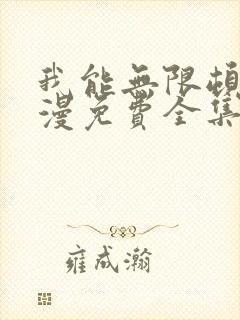 我能無限頓
漫免費全集
雍成瀚